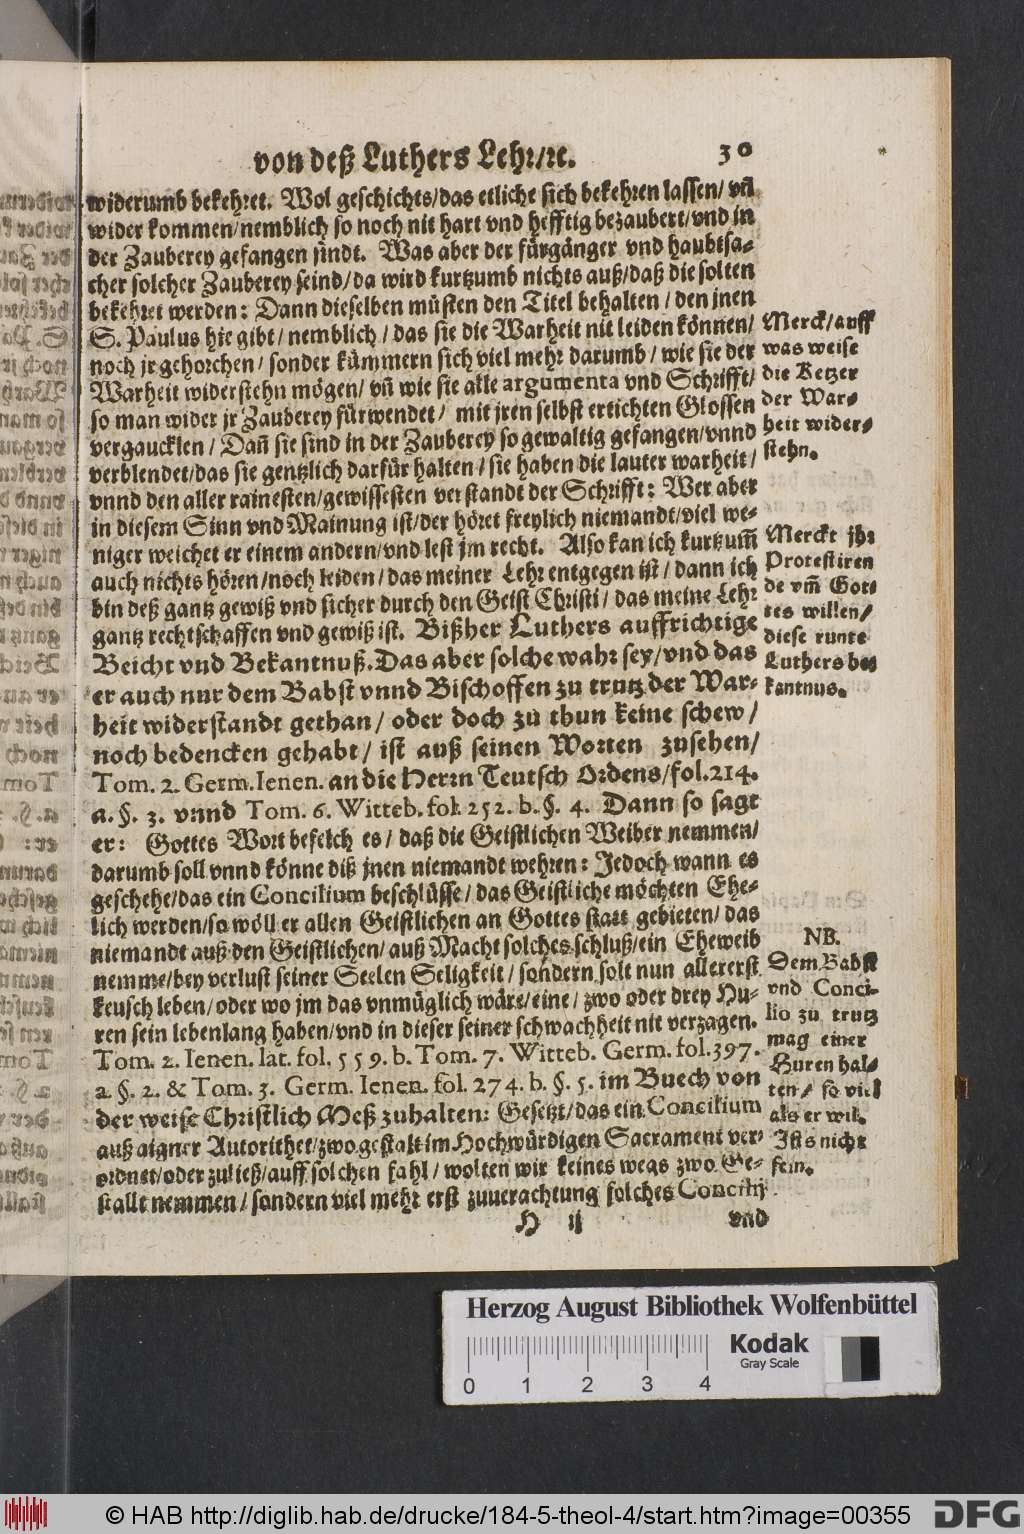 von deß Luthers Lehr/ꝛc. 30
widerumb bekehret. Wol geschichts/das etliche sich bekehren lassen/ vñ
wider kommen/nemblich so noch nit hart vnd hefftig bezaubert/vnd in
der Zauberey gefangen sindt. Was aber der fürgänger vnd haubtsa-
cher solcher Zauberey seind/da wird kurtzumb nichts auß/daß die solten
bekehret werden: Dann dieselben müsten den Titel behalten / den jnen
S. Paulus hie gibt/ nemblich / das sie die Warheit nit leiden können/
noch jr gehorchen/ sonder kümmern sich viel mehr darumb / wie sie der
Warheit widerstehn mögen/ vñ wie sie alle argumenta vnd Schrifft/
so man wider jr Zauberey fürwendet/ mit jren selbst ertichten Glossen
vergaucklen / Dañ sie sind in der Zauberey so gewaltig gefangen/vnnd
verblendet/das sie gentzlich darfür halten / sie haben die lauter warheit/
vnnd den aller rainesten/gewissesten verstandt der Schrifft: Wer aber
in diesem Sinn vnd Mainung ist/der höret freylich niemandt/viel we-
niger weichet er einem andern/vnd lest jm recht. Also kan ich kurtzum̃
auch nichts hören/noch leiden/das meiner Lehr entgegen ist/ dann ich
bin deß gantz gewiß vnd sicher durch den Geist Christi/ das meine Lehr
gantz rechtschaffen vnd gewiß ist. Bißher Luthers auffrichtige
Beicht vnd Bekantnuß. Das aber solche wahr sey/vnd das
er auch nur dem Babst vnnd Bischoffen zu trutz der War-
heit widerstandt gethan/ oder doch zu thun keine schew/
noch bedencken gehabt/ ist auß seinen Worten zusehen/
Tom. 2. Germ. Ienen. an die Herrn Teutsch Ordens/fol.214.
a. §. 3. vnnd Tom. 6. Witteb. fol. 252. b. §. 4. Dann so sagt
er: Gottes Wort befelch es/ daß die Geistlichen Weiber nemmen/
darumb soll vnnd könne diß jnen niemandt wehren: Jedoch wann es
geschehe/das ein Concilium beschlüsse/das Geistliche möchten Ehe-
lich werden/so wöll er allen Geistlichen an Gottes statt gebieten/das
niemandt auß den Geistlichen/auß Macht solches schluß/ein Eheweib
nemme/bey verlust seiner Seelen Seligkeit/ sondern solt nun allererst
keusch leben/oder wo jm das vnmüglich wäre/eine/ zwo oder drey Hu-
ren sein lebenlang haben/vnd in dieser seiner schwachheit nit verzagen.
Tom. 2. Ienen. lat. fol. 559. b. Tom. 7. Witteb. Germ. fol. 397.
a. §. 2. & Tom. 3. Germ. Ienen. fol. 274. b. §. 5. im Buech von
der weise Christlich Meß zuhalten: Gesetzt/das ein Concilium
auß aigner Autorithet/zwo gestalt im Hochwürdigen Sacrament ver-
ordnet/oder zuließ/auff solchen fahl/ wolten wir keines wegs zwo Ge-
stallt nemmen/ sondern viel mehr erst zuuerachtung solches Concilij
H ij vnd
Merck/auff
was weise
die Ketzer
der War-
heit wider-
stehn.
Merckt jhr
Protestiren
de vm̃ Got-
tes willen/
diese runte
Luthers be-
kantnus.
NB.
Dem Babst
vnd Conci-
lio zu trutz
mag einer
Huren hal-
ten/ so viel
als er wil.
Ists nicht
fein.
Herzog August Bibliothek Wolfenbüttel
Kodak
Gray Scale
0 1 2 3 4
© HAB http://diglib.hab.de/drucke/184-5-theol-4/start.htm?image=00355
DFG